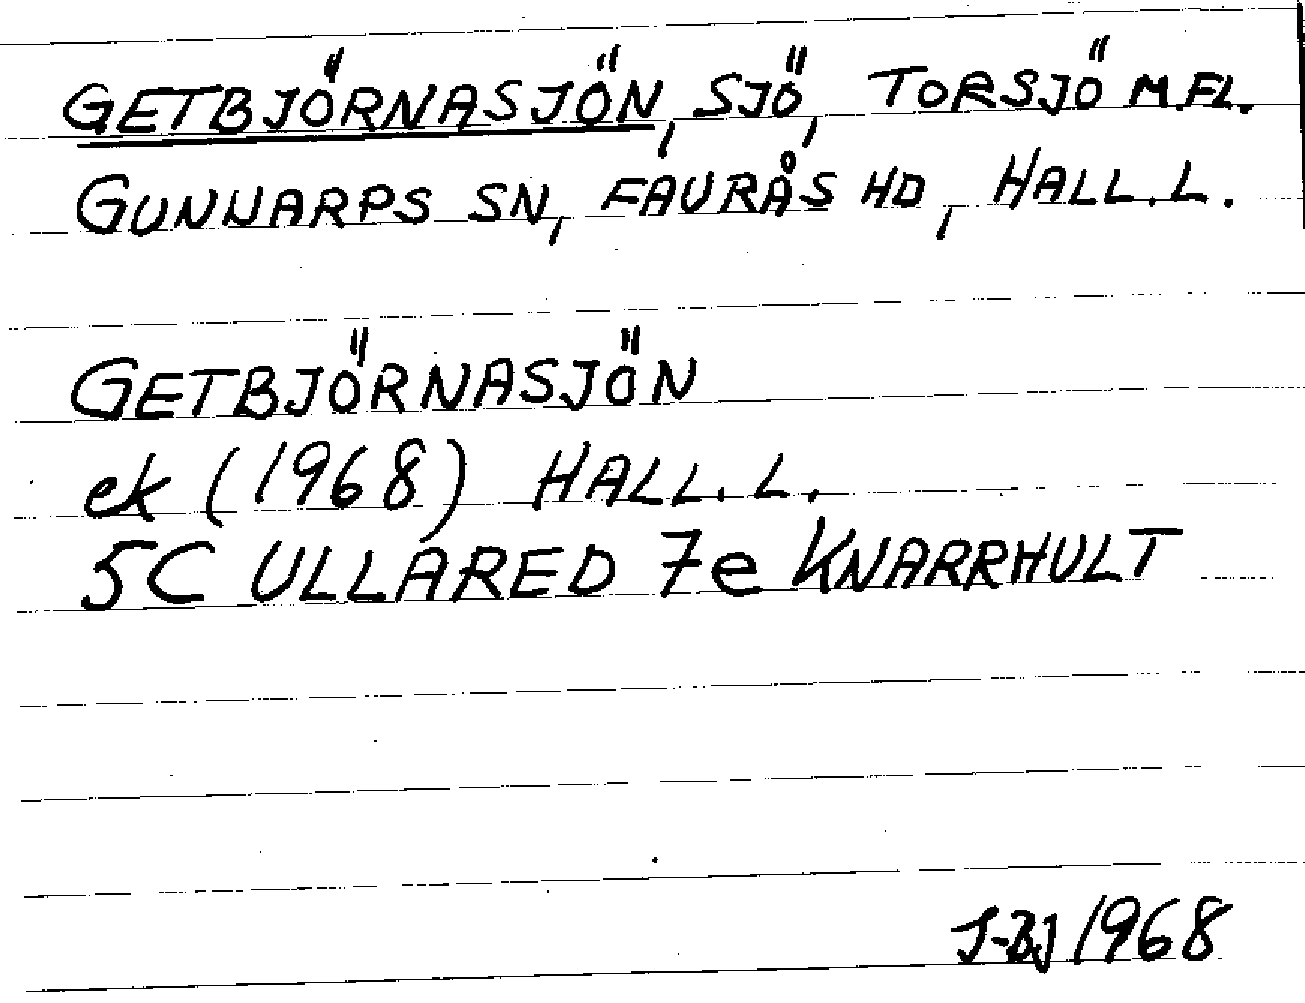 GETBJÖRNASJÖN, SJÖ, TORSJÖ M.FL.
GUNNARPS SN, FAURÅS HD, HALL.L.
GETBJÖRNASJÖN
ek (1968) HALL.L.
5C ULLARED 7e KNARRHULT
J-BJ 1968